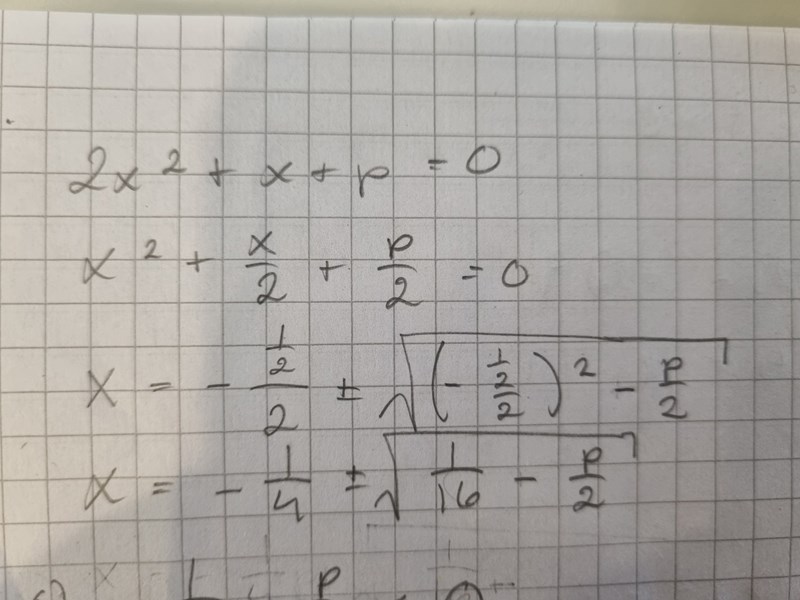 2x² + x + p = 0
x² + x/2 + p/2 = 0
x = - (1/2)/2 ± √((- (1/2)/2)² - p/2)
x = - 1/4 ± √(1/16 - p/2)